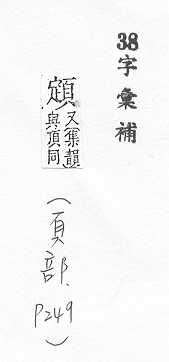 38字彙補
顁又集韻
與頂同
(頁部.
P249)